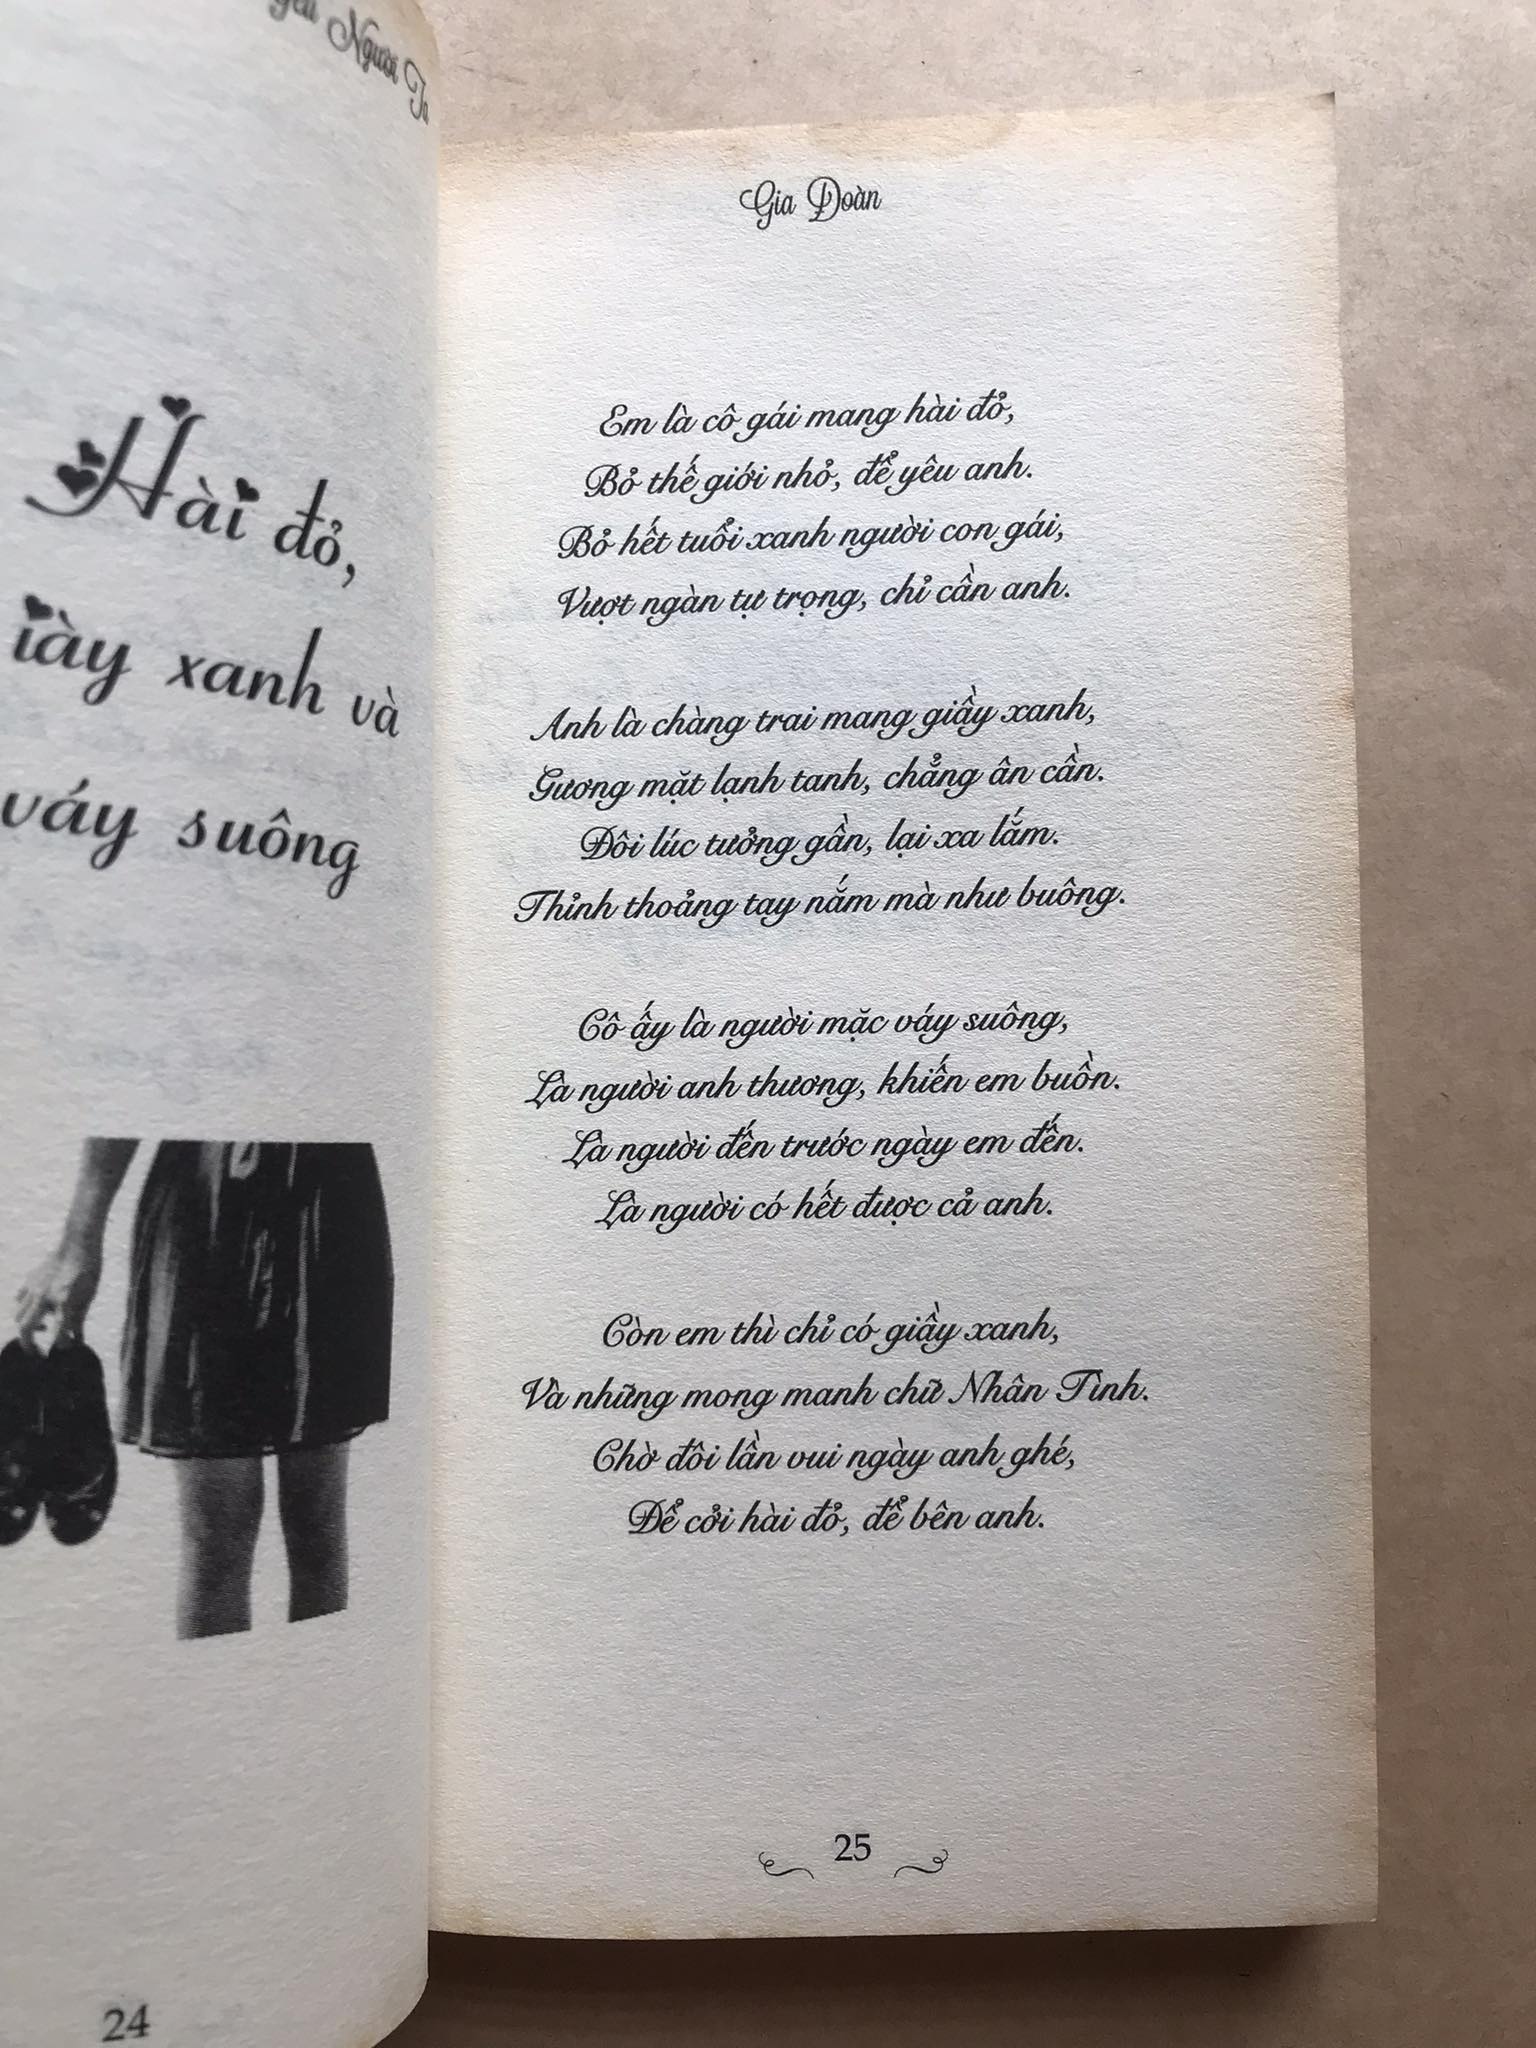 Người
Hài đỏ,
xanh và
váy suông
24
Gia Đoàn
Em là cô gái mang hài đỏ,
Bỏ thế giới nhỏ, để yêu anh.
Bỏ hết tuổi xanh người con gái,
Vượt ngàn tự trọng, chỉ cần anh.
Anh là chàng trai mang giầy xanh,
Gương mặt lạnh tanh, chẳng ân cần.
Đôi lúc tưởng gần, lại xa lắm.
Thỉnh thoảng tay nắm mà như buông.
Cô ấy là người mặc váy suông,
Là người anh thương, khiến em buồn.
Là người đến trước ngày em đến.
Là người có hết được cả anh.
Còn em thì chỉ có giầy xanh,
Và những mong manh chữ Nhân Tình.
Chờ đôi lần vui ngày anh ghé,
Để cởi hài đỏ, để bên anh.
25